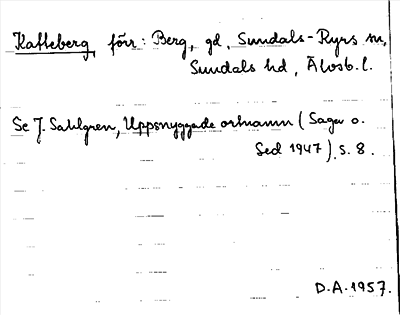 Katteberg, förr: Berg, gd, Sundals-Ryrs sn,
Sundals hd, Älvsb. l.
Se J. Sahlgren, Uppsnyggade ortnamn (Saga o.
Sed 1947). s. 8.
D.A. 1957.